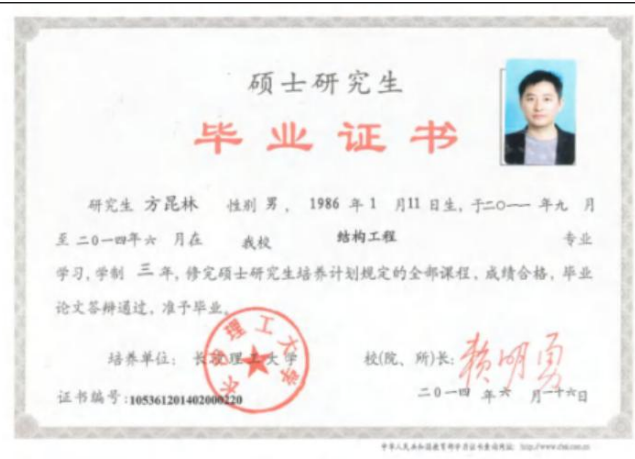 硕士研究生
毕业证书
研究生 方昆林 性别 男， 1986 年 1 月11 日生, 于二〇一一 年九 月
至 二0一四年六 月在 我校 结构工程 专业
学习, 学制 三 年, 修完硕士研究生培养计划规定的全部课程, 成绩合格, 毕业
论文答辩通过, 准予毕业。
培养单位： 长沙理工大学 校(院、所)长: 赖明勇
长沙理工大学
证书编号:105361201402000220 二0一四 年 六 月 二十六日
中华人民共和国教育部学历证书查询网址: http://www.chsi.com.cn